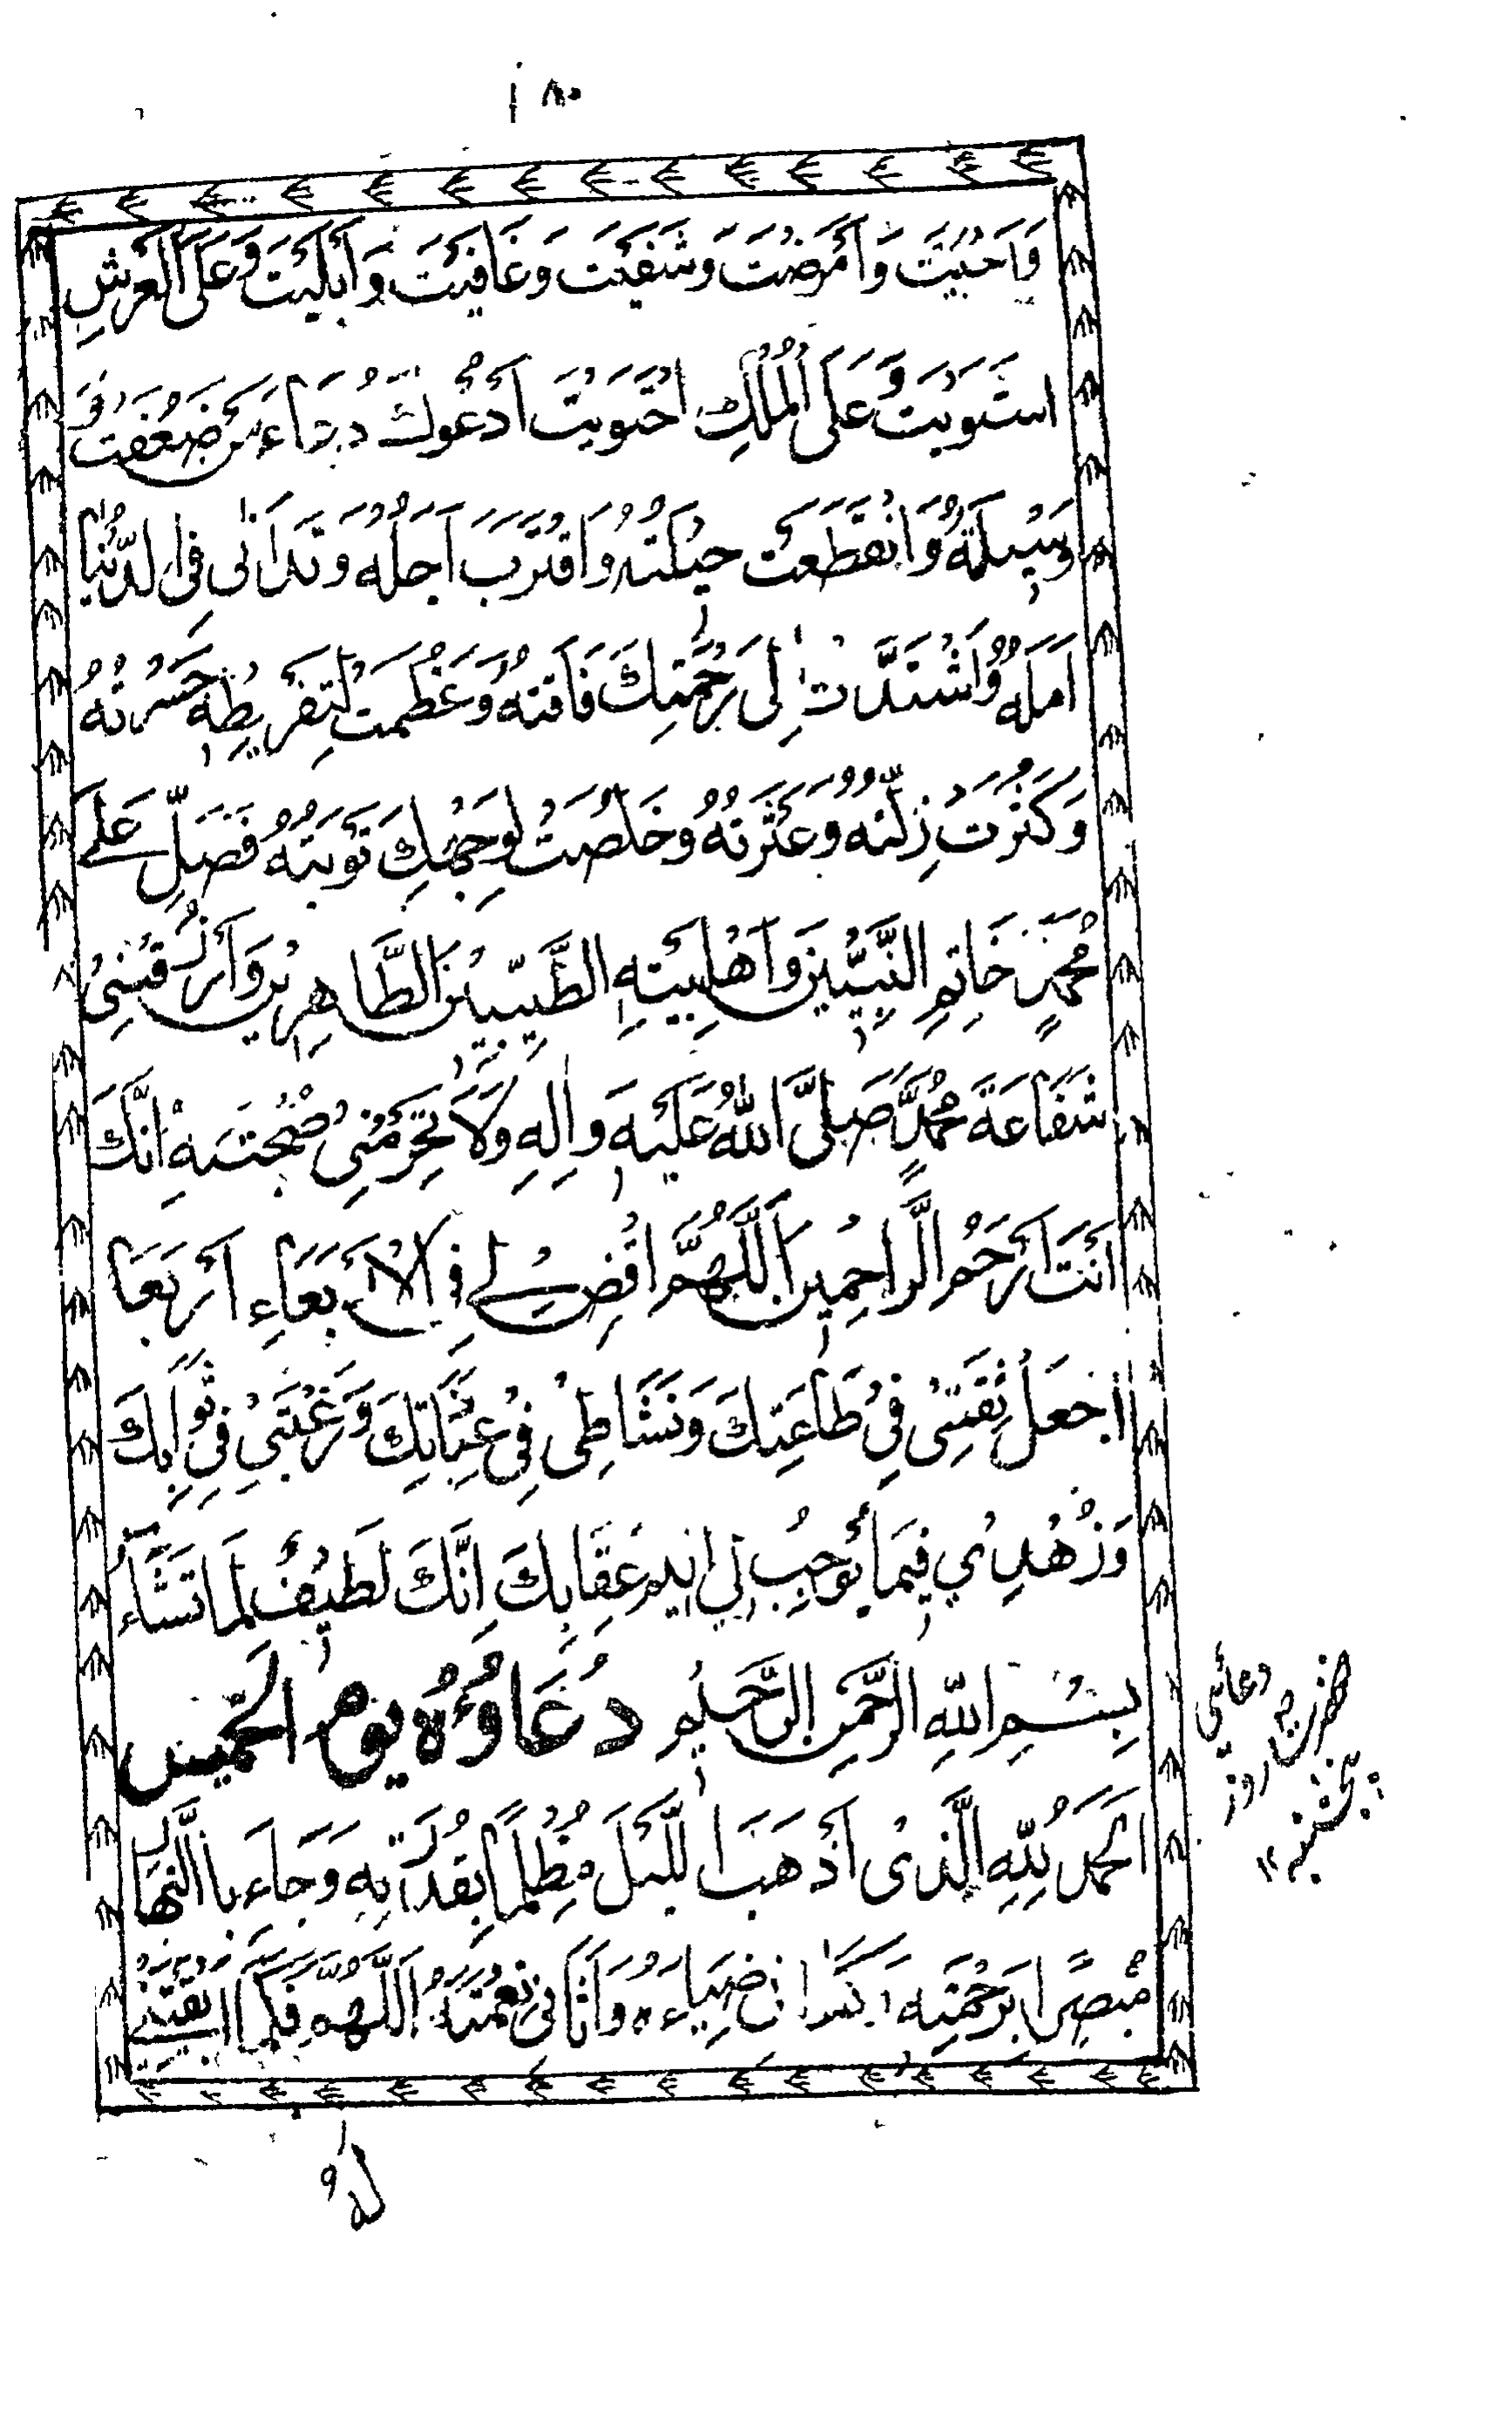 ١٨٠
وَاَحْيَيْتَ وَاَمْرَضْتَ وَشَفَيْتَ وَعَافَيْتَ وَاَبْلَيْتَ وَعَلَى الْعَرْشِ
اسْتَوَيْتَ وَعَلَى الْمُلْكِ احْتَوَيْتَ اَدْعُوكَ دُعَاءَ مَنْ ضَعُفَتْ
وَسِيلَتُهُ وَانْقَطَعَتْ حِيلَتُهُ وَاقْتَرَبَ اَجَلُهُ وَتَدَانٰى فِى الدُّنْيَا
اَمَلُهُ وَاشْتَدَّتْ اِلٰى رَحْمَتِكَ فَاقَتُهُ وَعَظُمَتْ لِتَفْرِيطِهِ حَسْرَتُهُ
وَكَثُرَتْ زَلَّتُهُ وَعَثْرَتُهُ وَخَلُصَتْ لِوَجْهِكَ تَوْبَتُهُ فَصَلِّ عَلٰى
مُحَمَّدٍ خَاتِمِ النَّبِيِّينَ وَاَهْلِبَيْتِهِ الطَّيِّبِيْنَ الطَّاهِرِيْنَ وَارْزُقْنِىْ
شَفَاعَةَ مُحَمَّدٍ صَلَّى اللّٰهُ عَلَيْهِ وَاٰلِهِ وَلَا تَحْرِمْنِىْ صُحْبَتَهُ اِنَّكَ
اَنْتَ اَرْحَمُ الرَّاحِمِينَ اَللّٰهُمَّ اقْضِ لِىْ فِى الْاَرْبَعَاءِ اَرْبَعًا
اجْعَلْ ثِقَتِىْ فِىْ طَاعَتِكَ وَنَشَاطِىْ فِىْ عِبَادَتِكَ وَرَغْبَتِىْ فِىْ ثَوَابِكَ
وَزُهْدِىْ فِيمَا يُوجِبُ لِى اَلِيمَ عِقَابِكَ اِنَّكَ لَطِيْفٌ لِمَا تَشَاءُ
بِسْمِ اللّٰهِ الرَّحْمٰنِ الرَّحِيْمِ دُعَاؤُهُ يَوْمِ الْخَمِيْس
اَلْحَمْدُ لِلّٰهِ الَّذِىْ اَذْهَبَ اللَّيْلَ مُظْلِمًا بِقُدْرَتِهِ وَجَاءَ بِاالنَّهَارِ
مُبْصِرًا بِرَحْمَتِهِ وَكَسَانِى ضِيَاءَهُ وَاَتَانِى نِعْمَتَهُ اَللّٰهُمَّ فَكَمَا اَبْقَيْتَنِىْ
لَهُ
حضرت کی دعائے
روز
پنجشنبہ ١٢